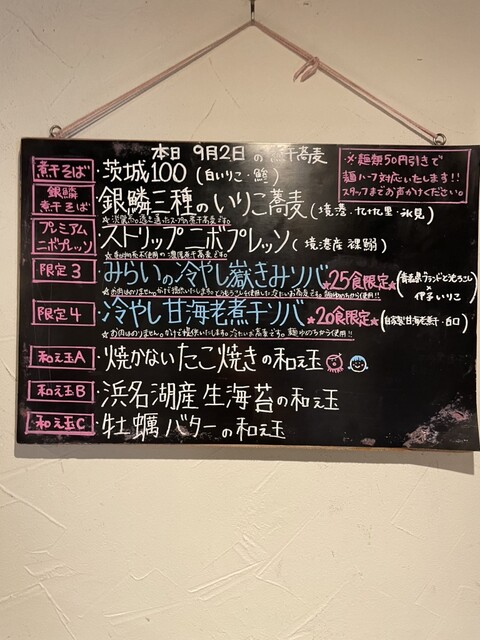 本日 9月2日の煮干蕎麦
※麺類50円引きで
麺ハーフ対応いたします!!
スタッフまでお声がけください。
煮干そば ・茨城100 (白いりこ・鯵)
銀鱗煮干そば ・銀鱗三種のいりこ蕎麦 (境港・九十九里・氷見)
プレミアムニボプレッソ ・ストリップニボプレッソ (境港産 裸鰯)
限定3 ・みらいの冷やし嶽きみソバ ★25食限定★ (青森県ブランドとうもろこし × 伊予いりこ)
限定4 ・冷やし甘海老煮干ソバ ★20食限定★ (自家製甘海老煮干・白口)
★お肉はのりません。かけで提供いたします。冷たいお蕎麦です。麺 ゆめちから使用!!
和え玉A ・焼かないたこ焼きの和え玉
和え玉B ・浜名湖産 生海苔の和え玉
和え玉C ・牡蠣バターの和え玉